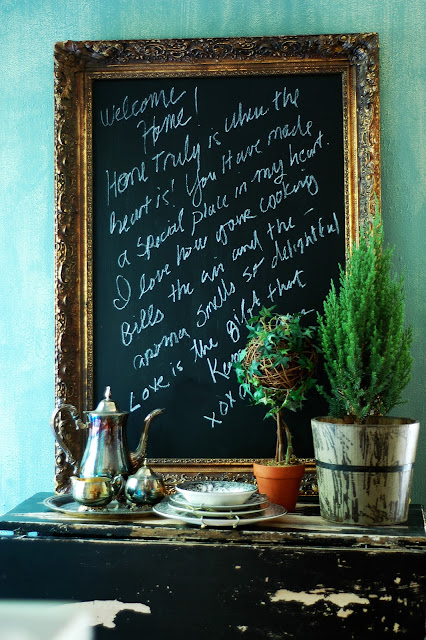 Welcome
Home!
Home Truly is when the
heart is! You Have made
a special place in my heart.
I love how your cooking
fills the air and the
aroma smells so delightful
Love is the gift that
xox